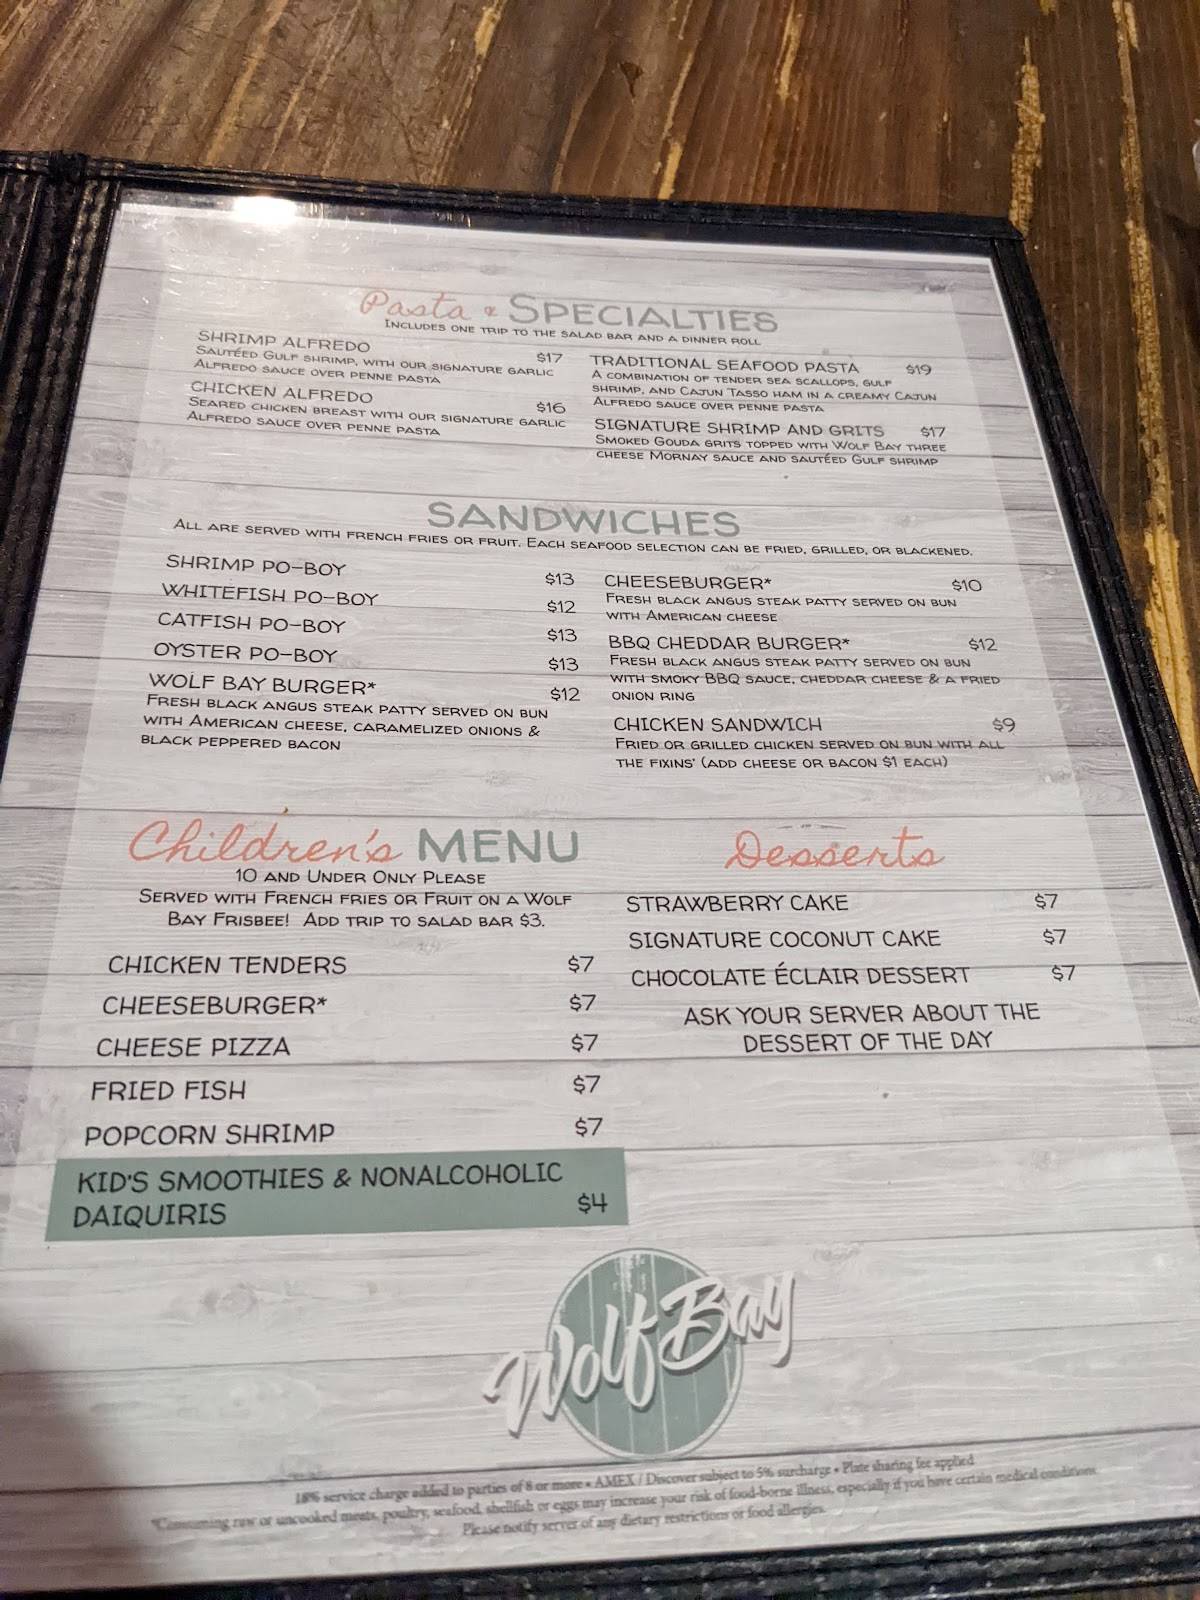 Pasta & SPECIALTIES
INCLUDES ONE TRIP TO THE SALAD BAR AND A DINNER ROLL
SHRIMP ALFREDO $17
SAUTÉED GULF SHRIMP, WITH OUR SIGNATURE GARLIC
ALFREDO SAUCE OVER PENNE PASTA
CHICKEN ALFREDO $16
SEARED CHICKEN BREAST WITH OUR SIGNATURE GARLIC
ALFREDO SAUCE OVER PENNE PASTA
TRADITIONAL SEAFOOD PASTA $19
A COMBINATION OF TENDER SEA SCALLOPS, GULF
SHRIMP, AND CAJUN TASSO HAM IN A CREAMY CAJUN
ALFREDO SAUCE OVER PENNE PASTA
SIGNATURE SHRIMP AND GRITS $17
SMOKED GOUDA GRITS TOPPED WITH WOLF BAY THREE
CHEESE MORNAY SAUCE AND SAUTÉED GULF SHRIMP
SANDWICHES
ALL ARE SERVED WITH FRENCH FRIES OR FRUIT. EACH SEAFOOD SELECTION CAN BE FRIED, GRILLED, OR BLACKENED.
SHRIMP PO-BOY $13
WHITEFISH PO-BOY $12
CATFISH PO-BOY $13
OYSTER PO-BOY $13
WOLF BAY BURGER* $12
FRESH BLACK ANGUS STEAK PATTY SERVED ON BUN
WITH AMERICAN CHEESE, CARAMELIZED ONIONS &
BLACK PEPPERED BACON
CHEESEBURGER* $10
FRESH BLACK ANGUS STEAK PATTY SERVED ON BUN
WITH AMERICAN CHEESE
BBQ CHEDDAR BURGER* $12
FRESH BLACK ANGUS STEAK PATTY SERVED ON BUN
WITH SMOKY BBQ SAUCE, CHEDDAR CHEESE & A FRIED
ONION RING
CHICKEN SANDWICH $9
FRIED OR GRILLED CHICKEN SERVED ON BUN WITH ALL
THE FIXINS' (ADD CHEESE OR BACON $1 EACH)
Children's MENU
10 AND UNDER ONLY PLEASE
SERVED WITH FRENCH FRIES OR FRUIT ON A WOLF
BAY FRISBEE! ADD TRIP TO SALAD BAR $3.
CHICKEN TENDERS $7
CHEESEBURGER* $7
CHEESE PIZZA $7
FRIED FISH $7
POPCORN SHRIMP $7
KID'S SMOOTHIES & NONALCOHOLIC
DAIQUIRIS $4
Desserts
STRAWBERRY CAKE $7
SIGNATURE COCONUT CAKE $7
CHOCOLATE ÉCLAIR DESSERT $7
ASK YOUR SERVER ABOUT THE
DESSERT OF THE DAY
Wolf Bay
18% service charge added to parties of 8 or more • AMEX / Discover subject to 5% surcharge • Plate sharing fee applied
*Consuming raw or uncooked meats, poultry, seafood, shellfish or eggs may increase your risk of food-borne illness, especially if you have certain medical conditions.
Please notify server of any dietary restrictions or food allergies.